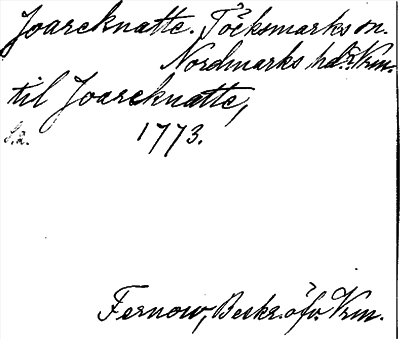 Joarcknatte. Töcksmarks sn.
Nordmarks hd. Vrm.
til Joarcknatte,
1773.
Fernow, Beskr. öfv. Vrm.